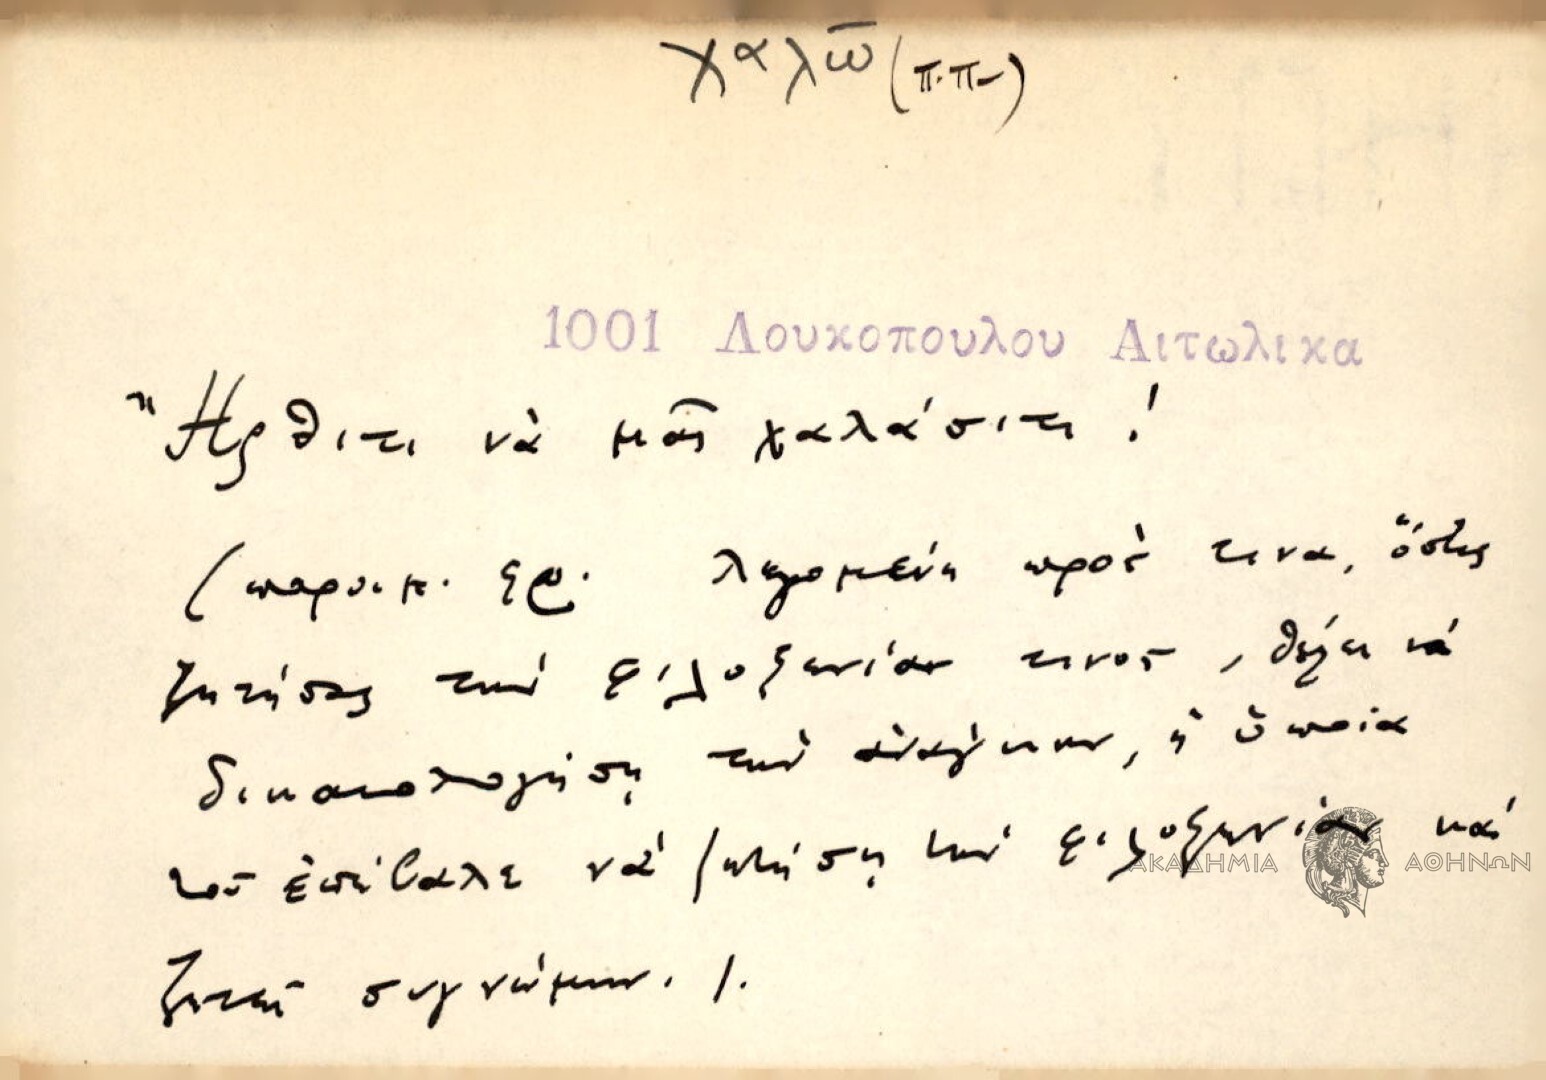 χαλῶ (π.π.)
1001 Λουκοπουλου Αιτωλικα
"Ηρθιτι νὰ μᾶς χαλάσιτι!
(παροιμ. φρ. λεγομένη πρός τινα, ὅστις
ζητήσας τὴν φιλοξενίαν τινος, θέλει νὰ
δικαιολογήσῃ τὴν ἀνάγκην, ἡ ὁποία
τοῦ ἐπέβαλε νὰ ζητήσῃ τὴν φιλοξενίαν καὶ
ζητεῖ συγνώμην.).
ΑΚΑΔΗΜΙΑ ΑΘΗΝΩΝ